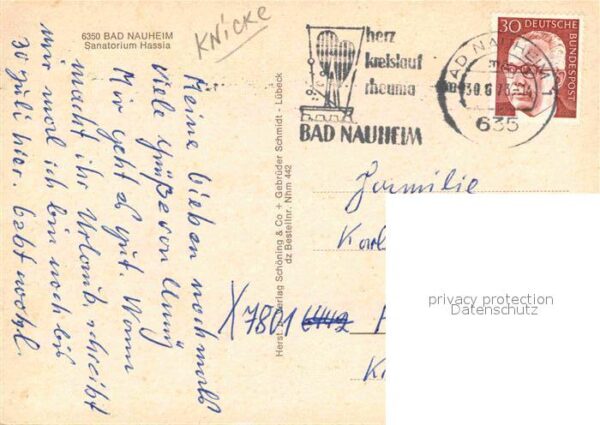 6350 BAD NAUHEIM
Sanatorium Hassia
KNICKE
Meine lieben nochmals
viele Grüße von Ummy
Mir geht es gut. Wann
macht ihr Urlaub, schreibt
mir mal ich bin noch bis
30 Juli hier. Lebt wohl.
Verlag Schöning & Co + Gebrüder Schmidt - Lübeck
dz Bestellnr. Nhm 442
herz
kreislauf
rheuma
BAD NAUHEIM
BAD NAUHEIM
635
30
DEUTSCHE
BUNDESPOST
Familie
X 7801
privacy protection
Datenschutz